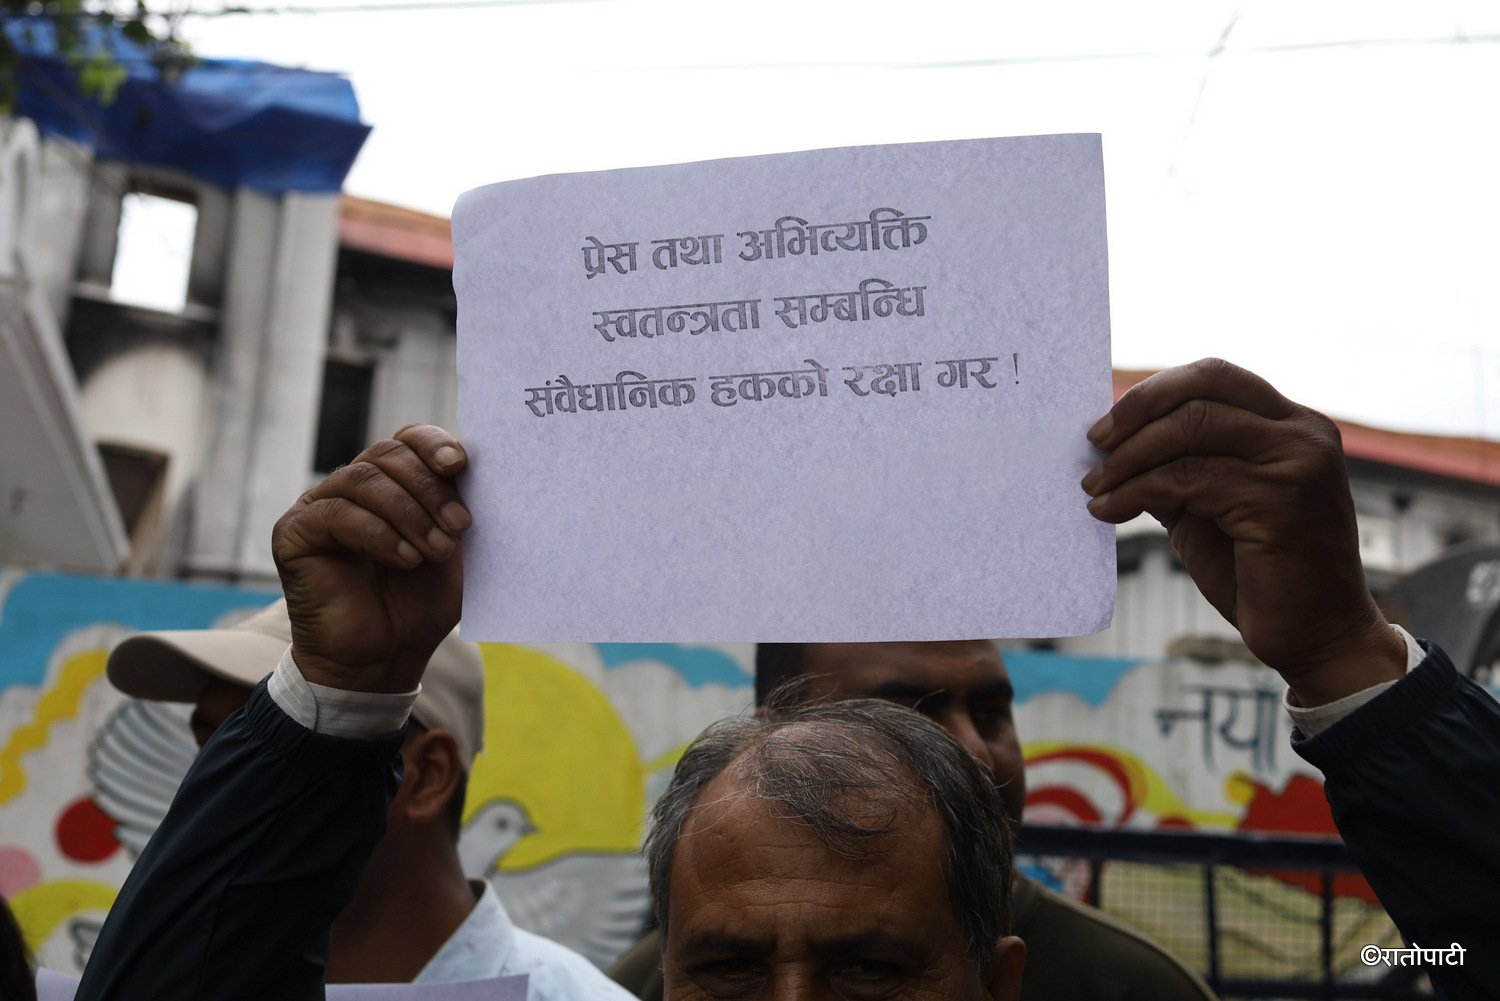 प्रेस तथा अभिव्यक्ति
स्वतन्त्रता सम्बन्धि
संवैधानिक हकको रक्षा गर !
नयाँ
©रातोपाटी